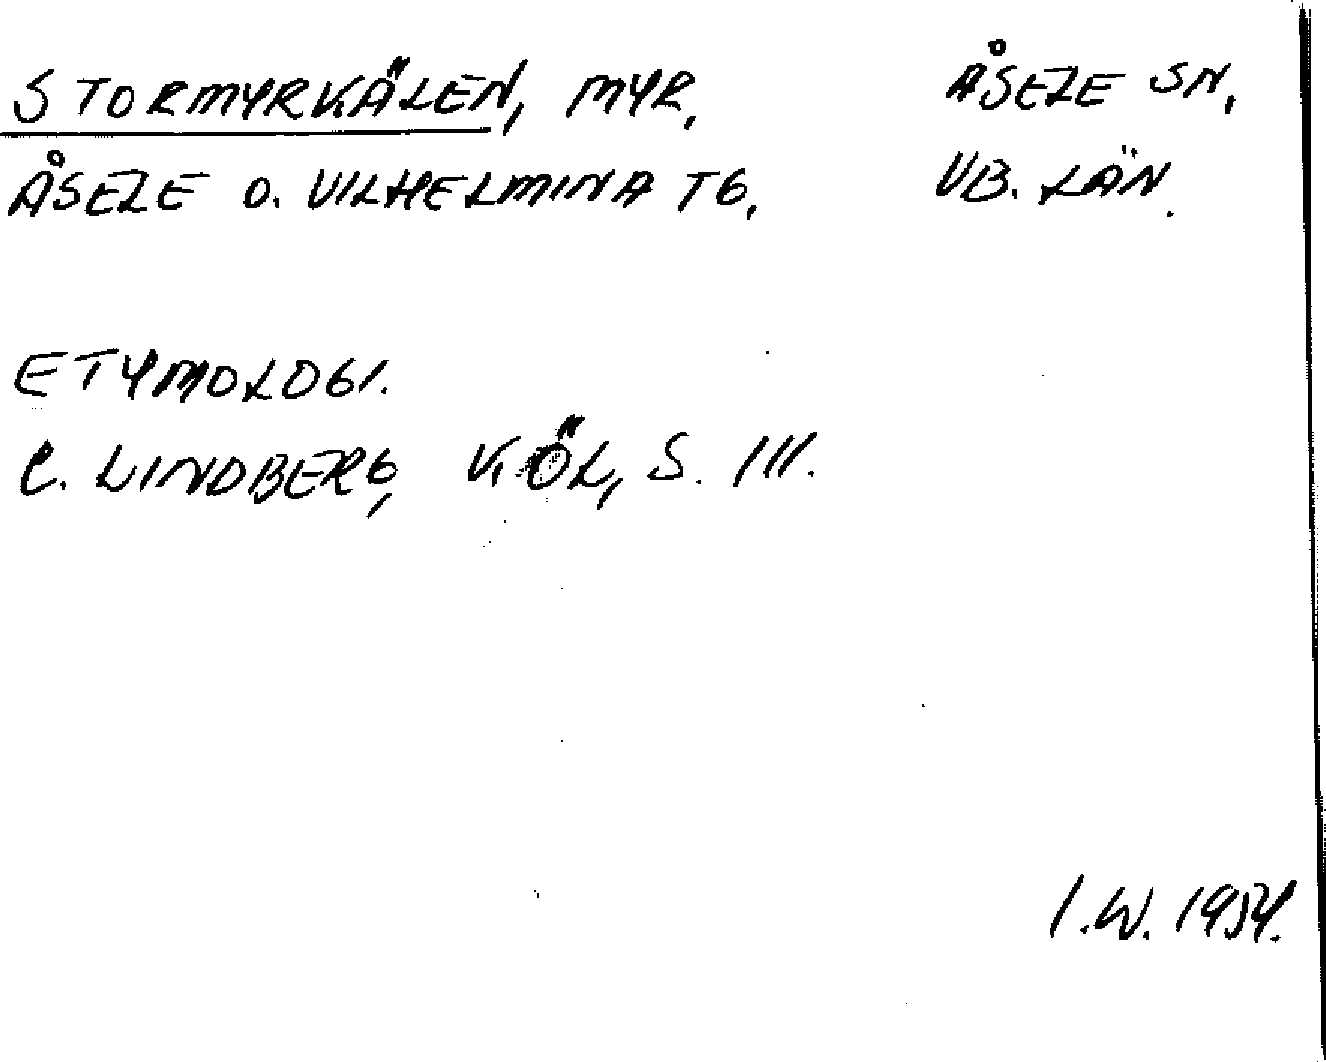 STORMYRKÄLEN, MYR,
ÅSELE O. VILHELMINA TG,
ÅSELE SN,
VB. LÄN.
ETYMOLOGI.
C. LINDBERG, KÖL, S. 111.
I.W. 1954.